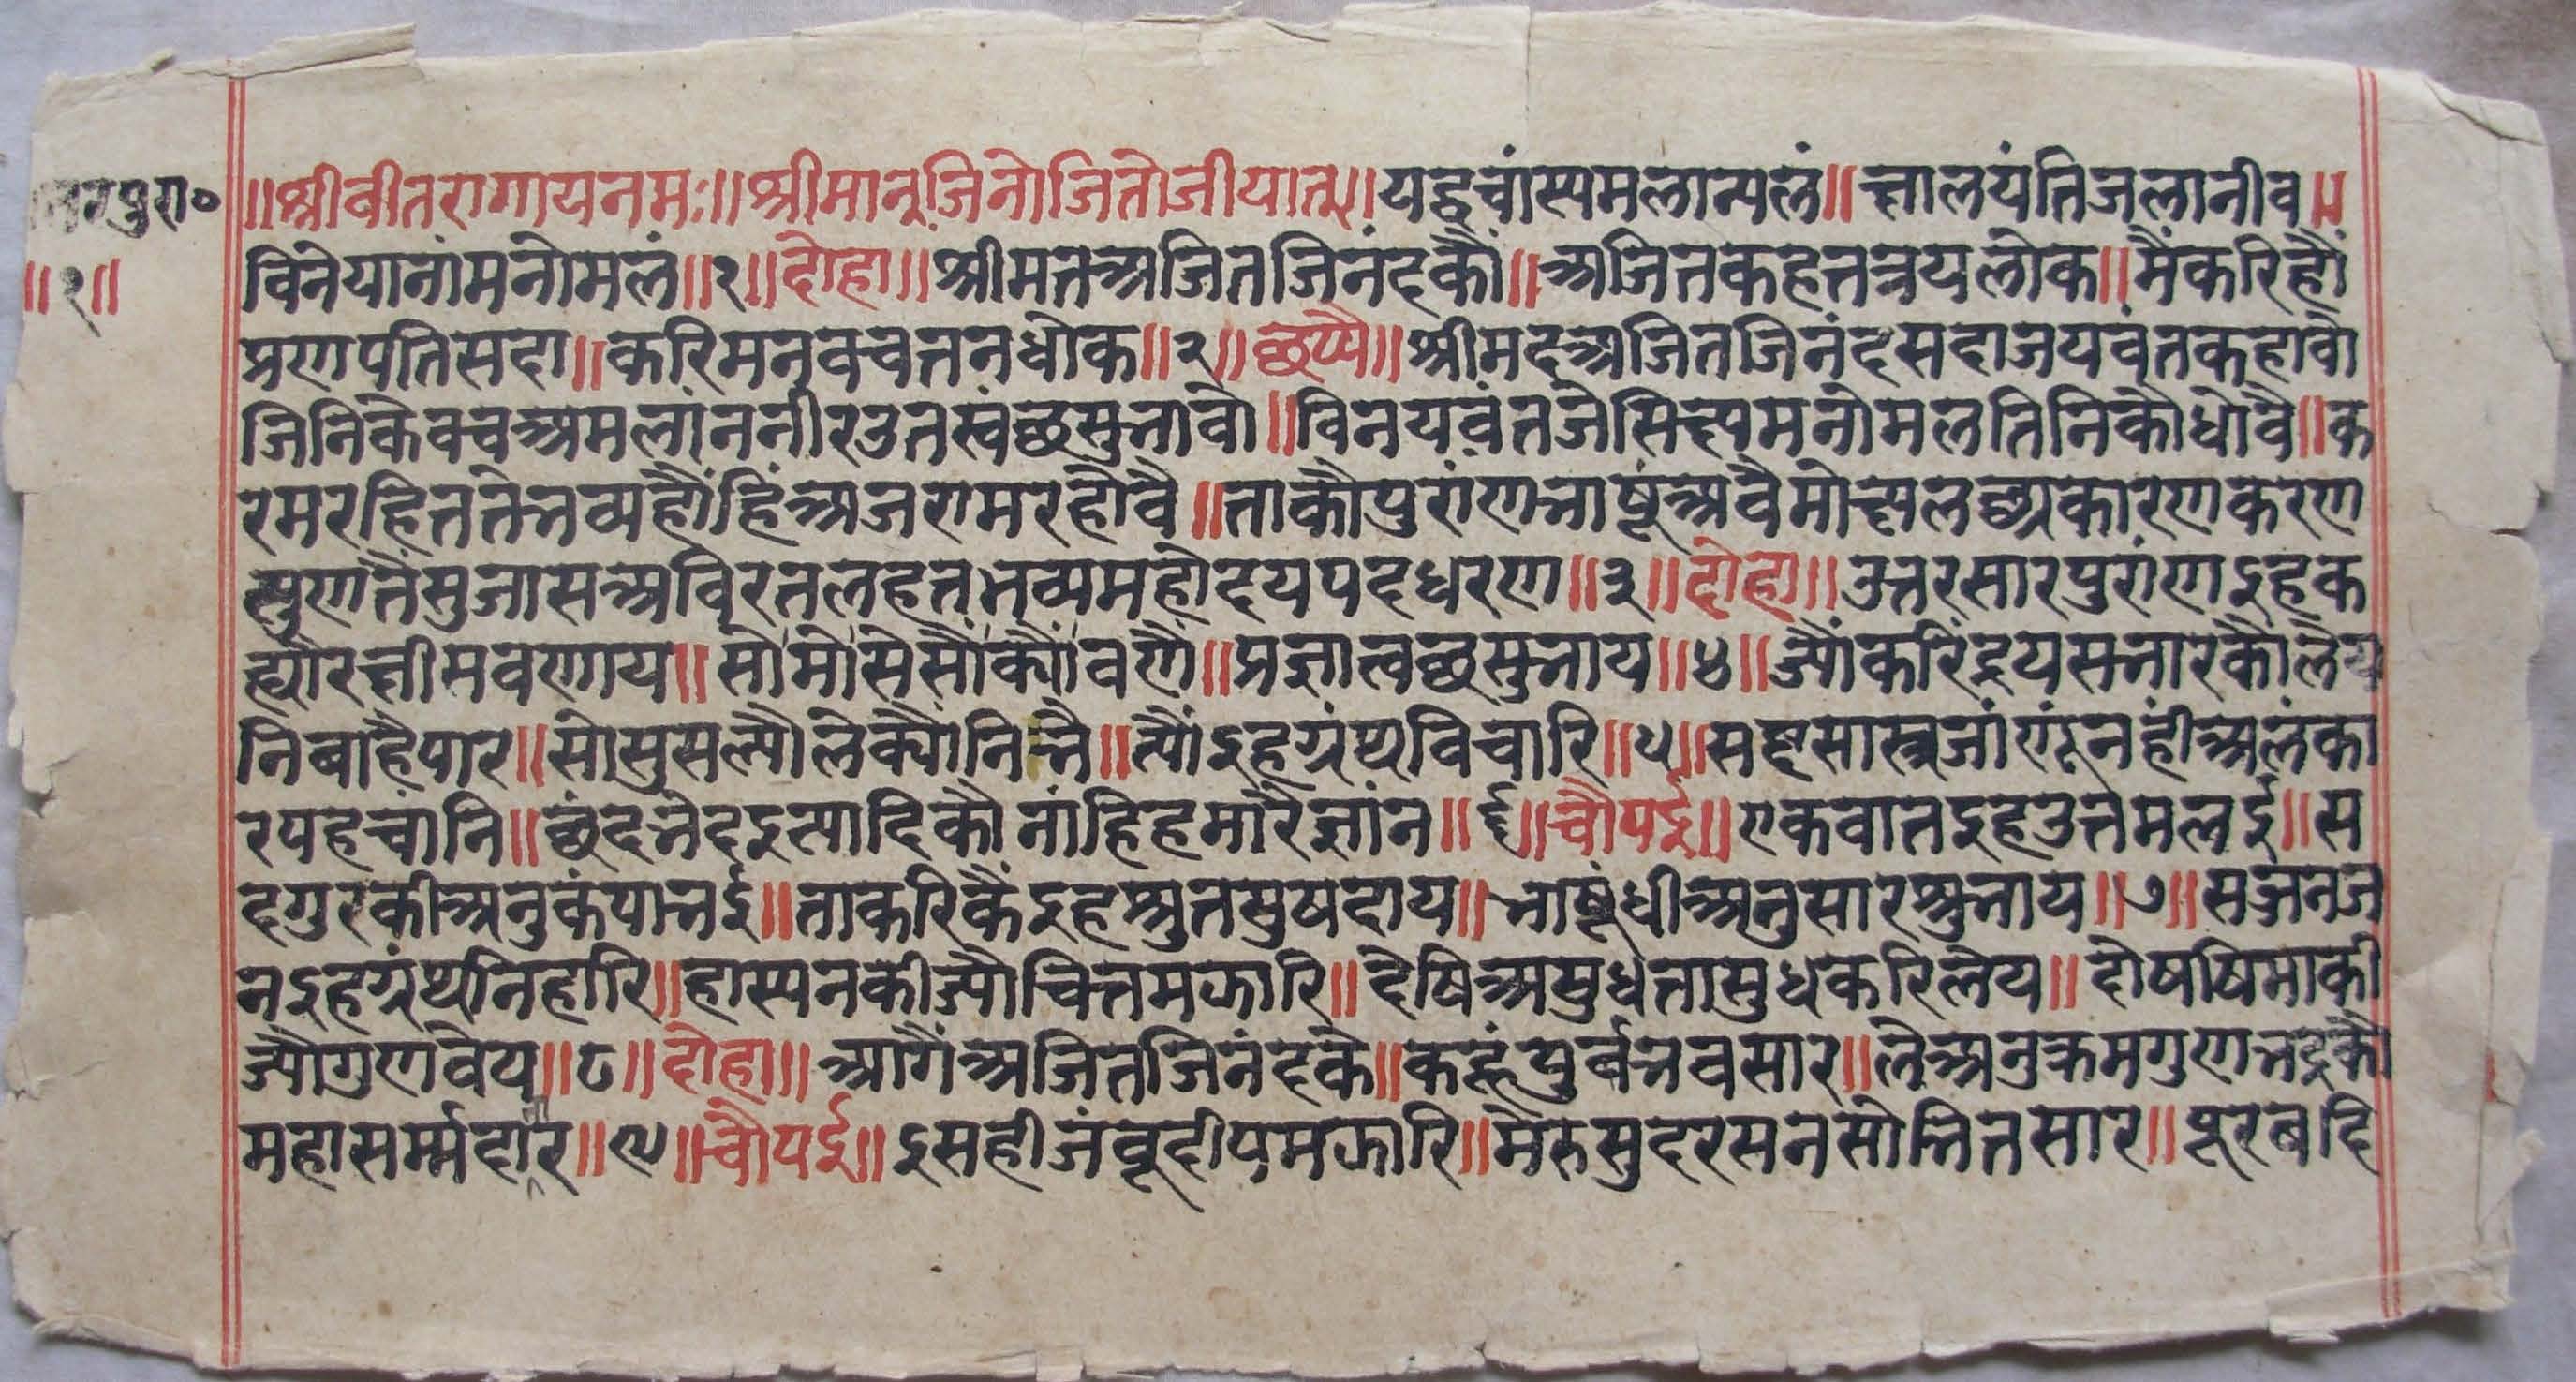 ॥श्रीवीतरागायनमः॥श्रीमान्जिनोजितोजीयात्॥यद्वचांस्यमलान्यलं॥क्षालयंतिजलानीव॥
॥१॥ विनेयानांमनोमलं॥१॥दोहा॥श्रीमतअजितजिनंदकौं॥अजितकहतत्रयलोक॥मैंकरिहौं
प्रणपतिसदा॥करिमनवचतनधोक॥२॥छप्पै॥श्रीमदअजितजिनंदसदाजयवंतकहावो
जिनिकेवचअमलांननीरउतस्वंछसुभावो॥विनयवंतजेसिष्यमनोमलतिनिकौधोवै॥क
रमरहिततेभव्यहौंहिंअजरामरहोवै॥ताकौपुरांणभाषूंअवैमोष्यलछकारणकरण
सुणतैंसुजासअविरतलहतभव्यमहोदयपदधरण॥३॥दोहा॥उत्तरसारपुरांणइहक
ह्यौरत्तीमवणाय॥सोमोसेसौंक्यौंवणैं॥प्रज्ञात्वछसुभाय॥४॥ज्यौंकरिंद्रयसभारकौलेय
निबाहैपार॥सोसुसल्यौलेक्यौंनिभै॥त्यौंइहग्रंथविचारि॥५॥सब्दसास्त्रजांणूंनहींअलंका
रपहचांनि॥छंदभेदइत्यादिकौनांहिहमारैज्ञांन॥६॥चौपई॥एकवातइहउत्तमलई॥स
दगुरकीअनुकंपाभई॥ताकरिकैंइहश्रुतसुषदाय॥भाषूंधीअनुसारश्रुभाय॥७॥सज्जनज
नइहग्रंथनिहारि॥हास्यनकीज्यौचित्तमझारि॥देषिअसुधतासुधकरिलेय॥दोषषिमाकी
ज्यौगुणवेय॥८॥दोहा॥आगैंअजितजिनंदके॥कहूंपुर्बभवसार॥लेअनुक्रमगुणभद्रकौ
महासर्म्मदार॥९॥चौपई॥इसहीजंवूदीपमझारि॥मेरुसुदरसनसोभितसार॥पूरबदि